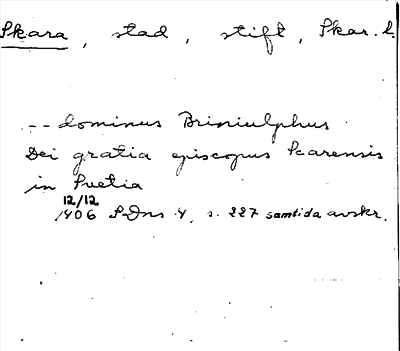 Skara, stad, stift, Skar. l.
-- dominus Briniulphus
Dei gratia episcopus Scarensis
in Suetia
12/12
1406 SDns 4, s. 227 samtida avskr.